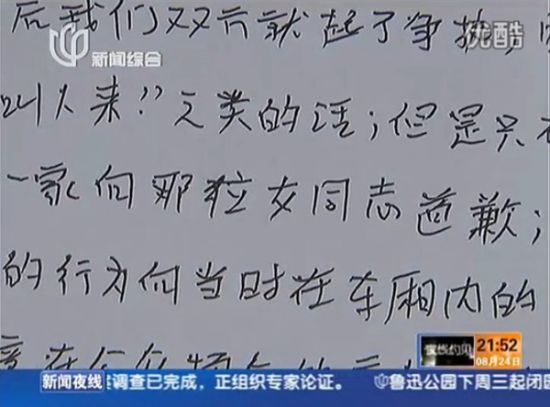 新闻综合
优酷
后我们双方就起了争执,
叫人来"之类的话;但是只
一家向那位女同志道歉;
的行为向当时在车厢内的
夜线约见
21:52
08月24日
新闻夜线
调查已完成,正组织专家论证。
鲁迅公园下周三起闭